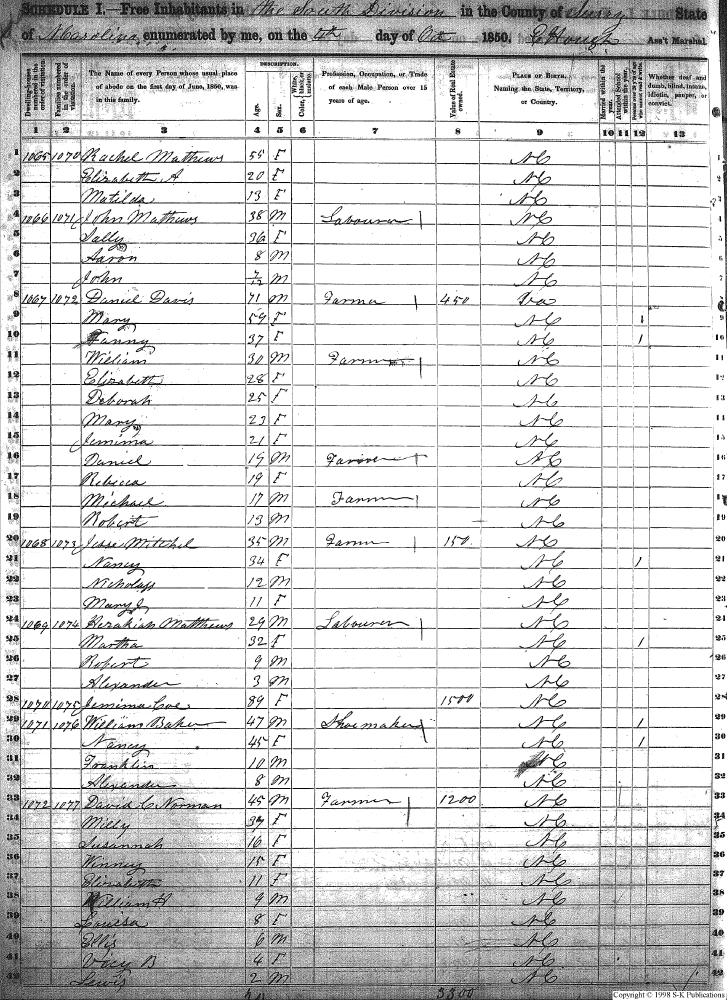 SCHEDULE I.—Free Inhabitants in the South Division in the County of Surry State
of N Carolina enumerated by me, on the day of Oct 1850. Ass't Marshal.
Dwelling-houses numbered in the order of visitation.
Families numbered in the order of visitation.
The Name of every Person whose usual place of abode on the first day of June, 1850, was in this family.
DESCRIPTION.
Age.
Sex.
Color, White, black, or mulatto.
Profession, Occupation, or Trade of each Male Person over 15 years of age.
Value of Real Estate owned.
PLACE OF BIRTH. Naming the State, Territory, or Country.
Married within the year.
Attended School within the year.
Persons over 20 y'rs of age who cannot read & write.
Whether deaf and dumb, blind, insane, idiotic, pauper, or convict.
1 2 3 4 5 6 7 8 9 10 11 12 13
1 1065 1070 Rachel Mathews 55 F NC
2 Elizabeth A 20 F NC 2
3 Matilda 13 F NC 3
4 1066 1071 John Mathews 38 M Labourer NC 4
5 Sally 36 F NC 5
6 Aaron 8 M NC 6
7 John 7/12 M NC 7
8 1067 1072 Daniel Davis 71 M Farmer 450 Va
9 Mary 59 F NC 1 9
10 Fanny 37 F NC 1 10
11 William 30 M Farmer NC 11
12 Elizabeth 28 F NC 12
13 Deborah 25 F NC 13
14 Mary 23 F NC 14
15 Jemima 21 F NC 15
16 Daniel 19 M Farmer NC 16
17 Rebecca 19 F NC 17
18 Michael 17 M Farmer NC 18
19 Robert 13 M NC 19
20 1068 1073 Jesse Mitchel 35 M Farmer 150 NC 20
21 Nancy 34 F NC 1 21
22 Nicholass 12 M NC 22
23 Mary J 11 F NC 23
24 1069 1074 Hezakiah Matthews 29 M Labourer NC 24
25 Martha 32 F NC 1 25
26 Robert 9 M NC 26
27 Alexander 3 M NC 27
28 1070 1075 Jemima Coe 89 F 1500 NC 28
29 1071 1076 William Baker 47 M Shoemaker NC 1 29
30 Nancy 45 F NC 1 30
31 Franklin 10 M NC 31
32 Alexander 8 M NC 32
33 1072 1077 David C Norman 45 M Farmer 1200 NC 33
34 Milly 37 F NC 34
35 Susannah 16 F NC 35
36 Winney 15 F NC 36
37 Elizabeth 11 F NC 37
38 William H 9 M NC 38
39 Louisa 8 F NC 39
40 Ellis 6 M NC 40
41 Vicy B 4 F NC 41
42 Lewis 2 M NC 42
3300
Copyright © 1998 S-K Publications